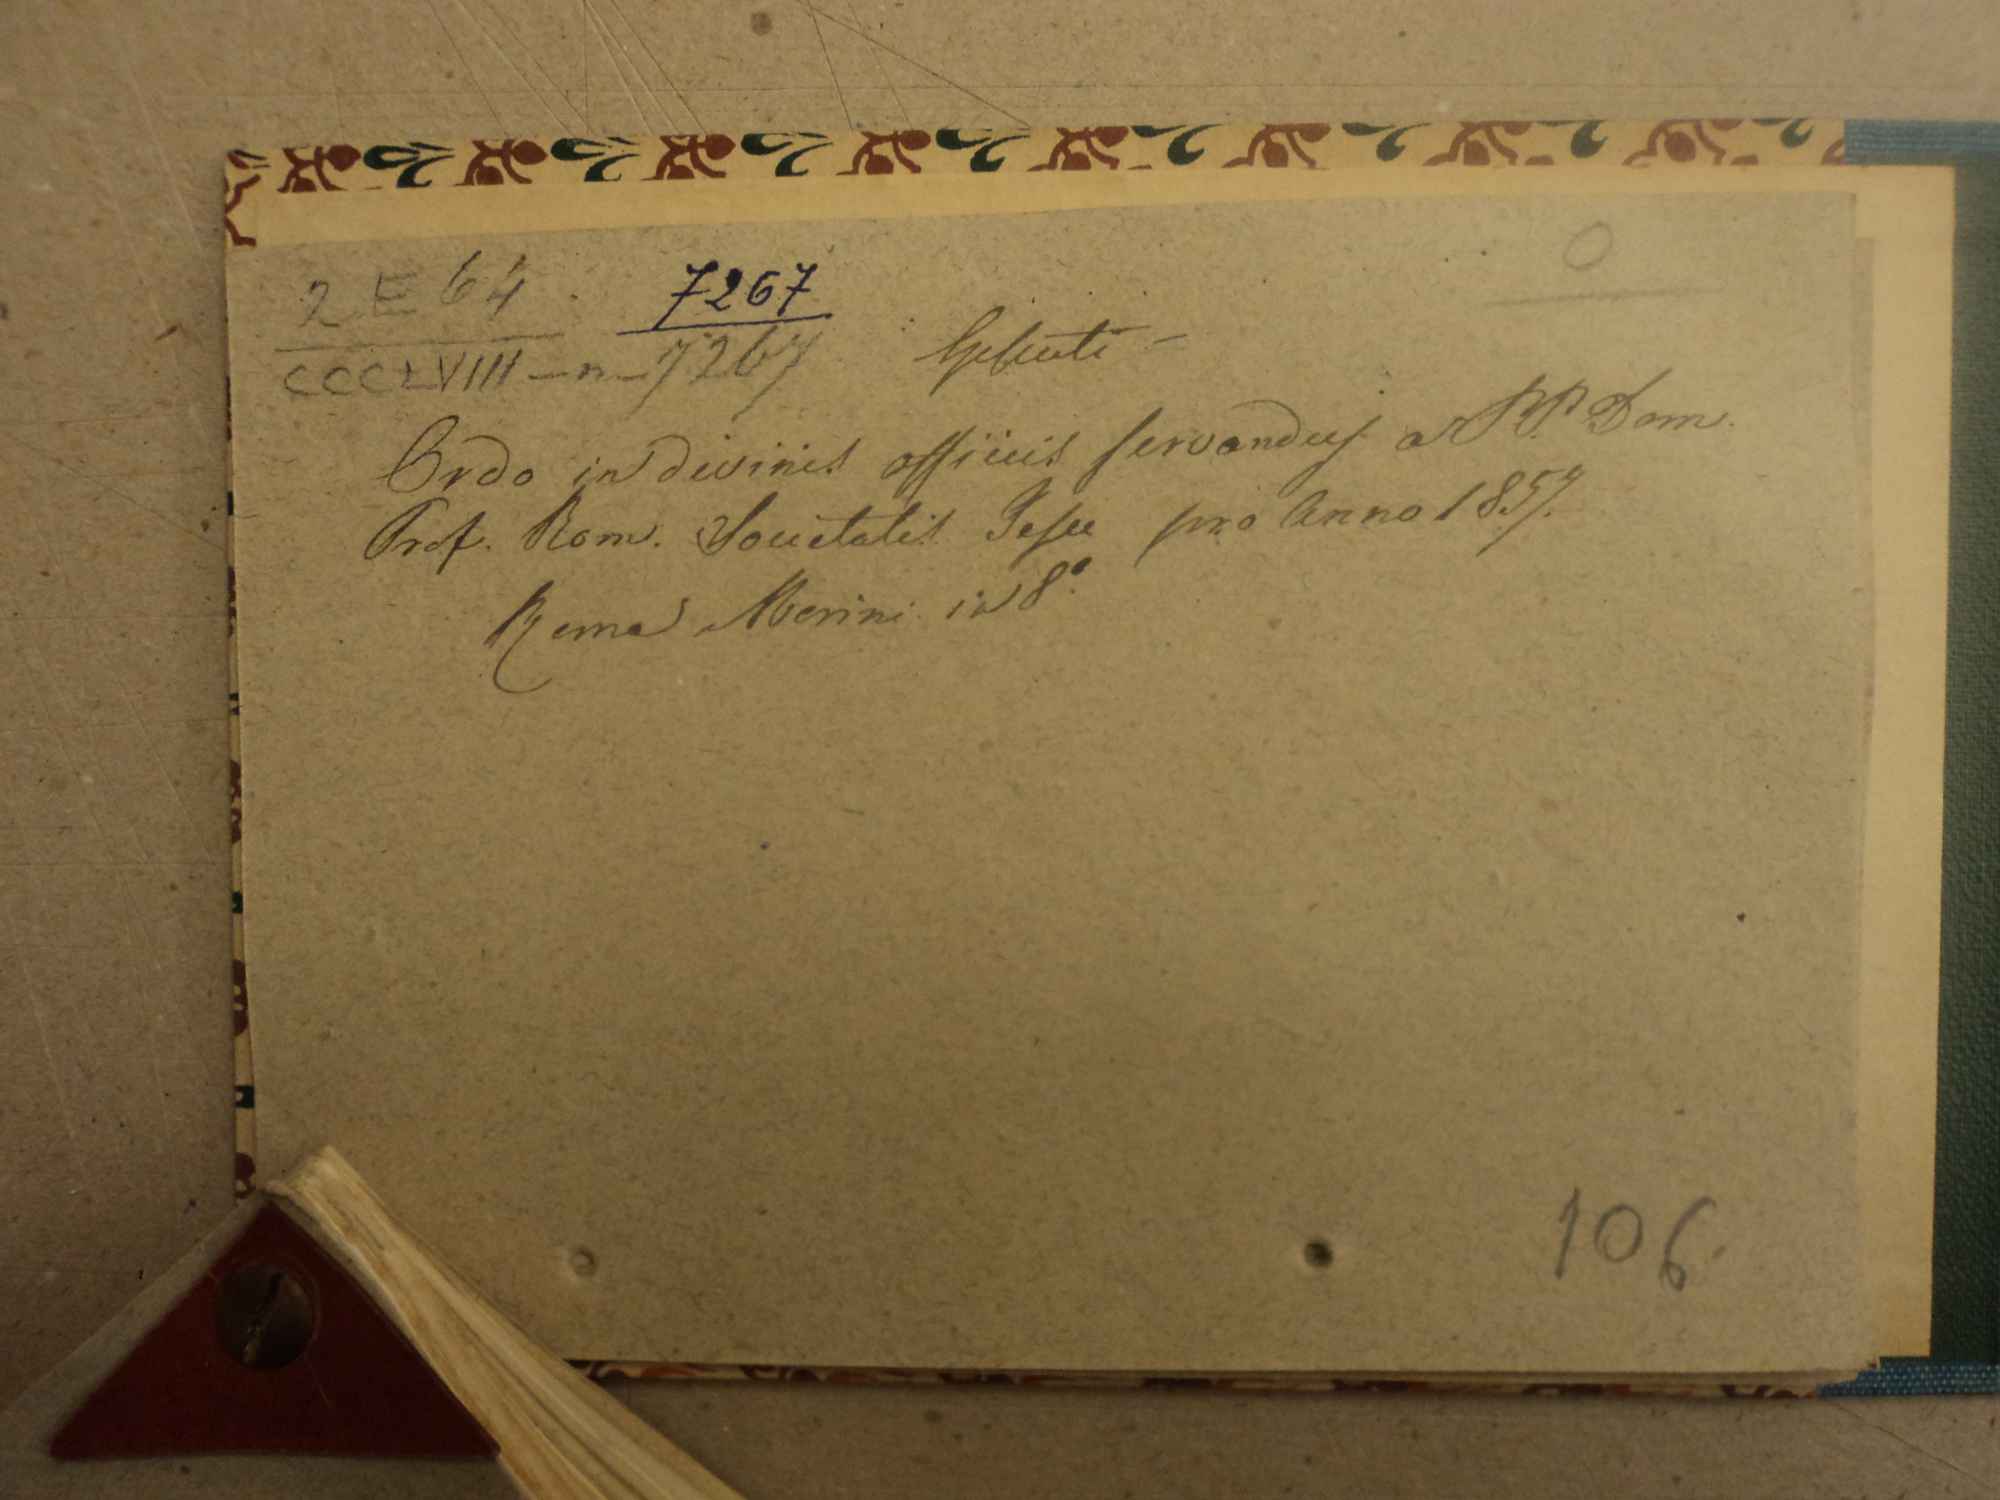 O
2 E 64
7267
CCCLVIII - n - 7267
Gesuiti -
Ordo in divinis officiis servandus a PP. Dom.
Prof. Rom. Societatis Jesu pro Anno 1857.
Roma Merini in 8°
106.